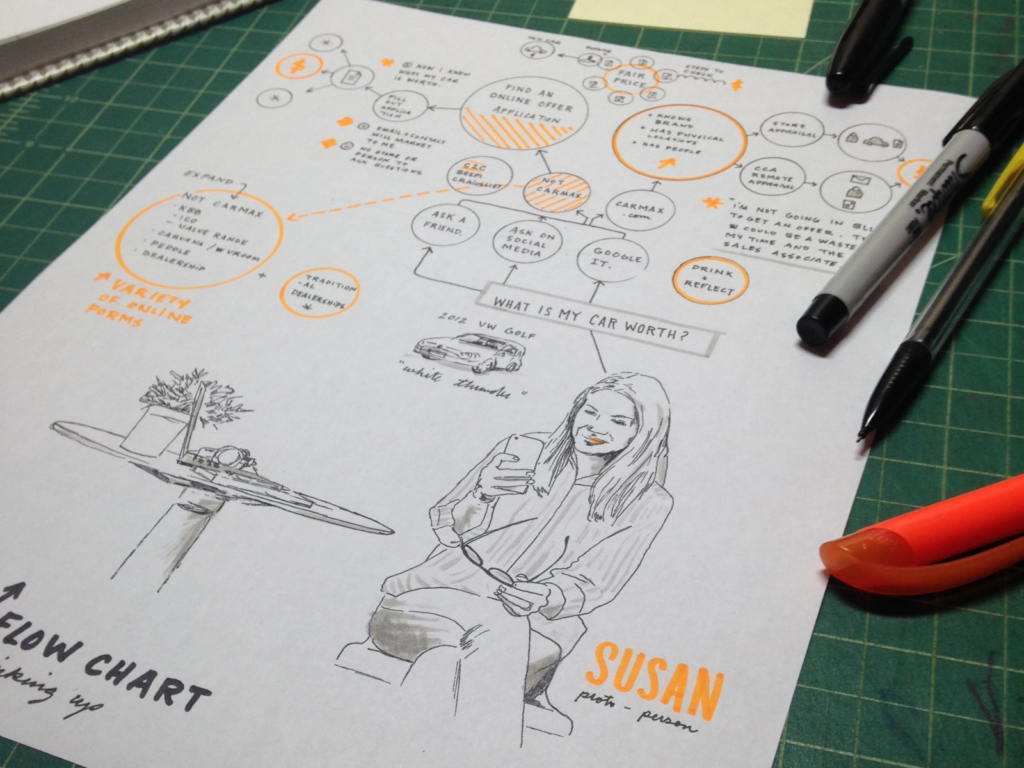 FAIR
PRICE
STEPS TO
CHECK
NOW I KNOW
WHAT MY CAR
IS WORTH.
FILL
OUT
APPLICATION
FIND AN
ONLINE OFFER
APPLICATION
+ KNOWS
BRAND
+ HAS PHYSICAL
LOCATIONS
+ HAS PEOPLE
STORE
APPRAISAL
CCA
REMOTE
APPRAISAL
EMAIL + CONTACT
WILL MARKET
TO ME
NO STORE OR
PERSON TO
ASK QUESTIONS
CRAIGSLIST
NOT
CARMAX
CARMAX
.com
"I'M NOT GOING IN
TO GET AN OFFER.
COULD BE A WASTE
MY TIME AND THE
SALES ASSOCIATE
EXPAND
NOT CARMAX
- KBB
- ICO
- VALUE RANGE
- CARVANA / VVROOM
- PEOPLE
- DEALERSHIP
+
TRADITION
-AL
DEALERSHIPS
VARIETY
OF ONLINE
FORMS
ASK A
FRIEND
ASK ON
SOCIAL
MEDIA
GOOGLE
IT.
DRINK
+
REFLECT
WHAT IS MY CAR WORTH?
2012 VW GOLF
"white thunder"
FLOW CHART
up
SUSAN
proto-person